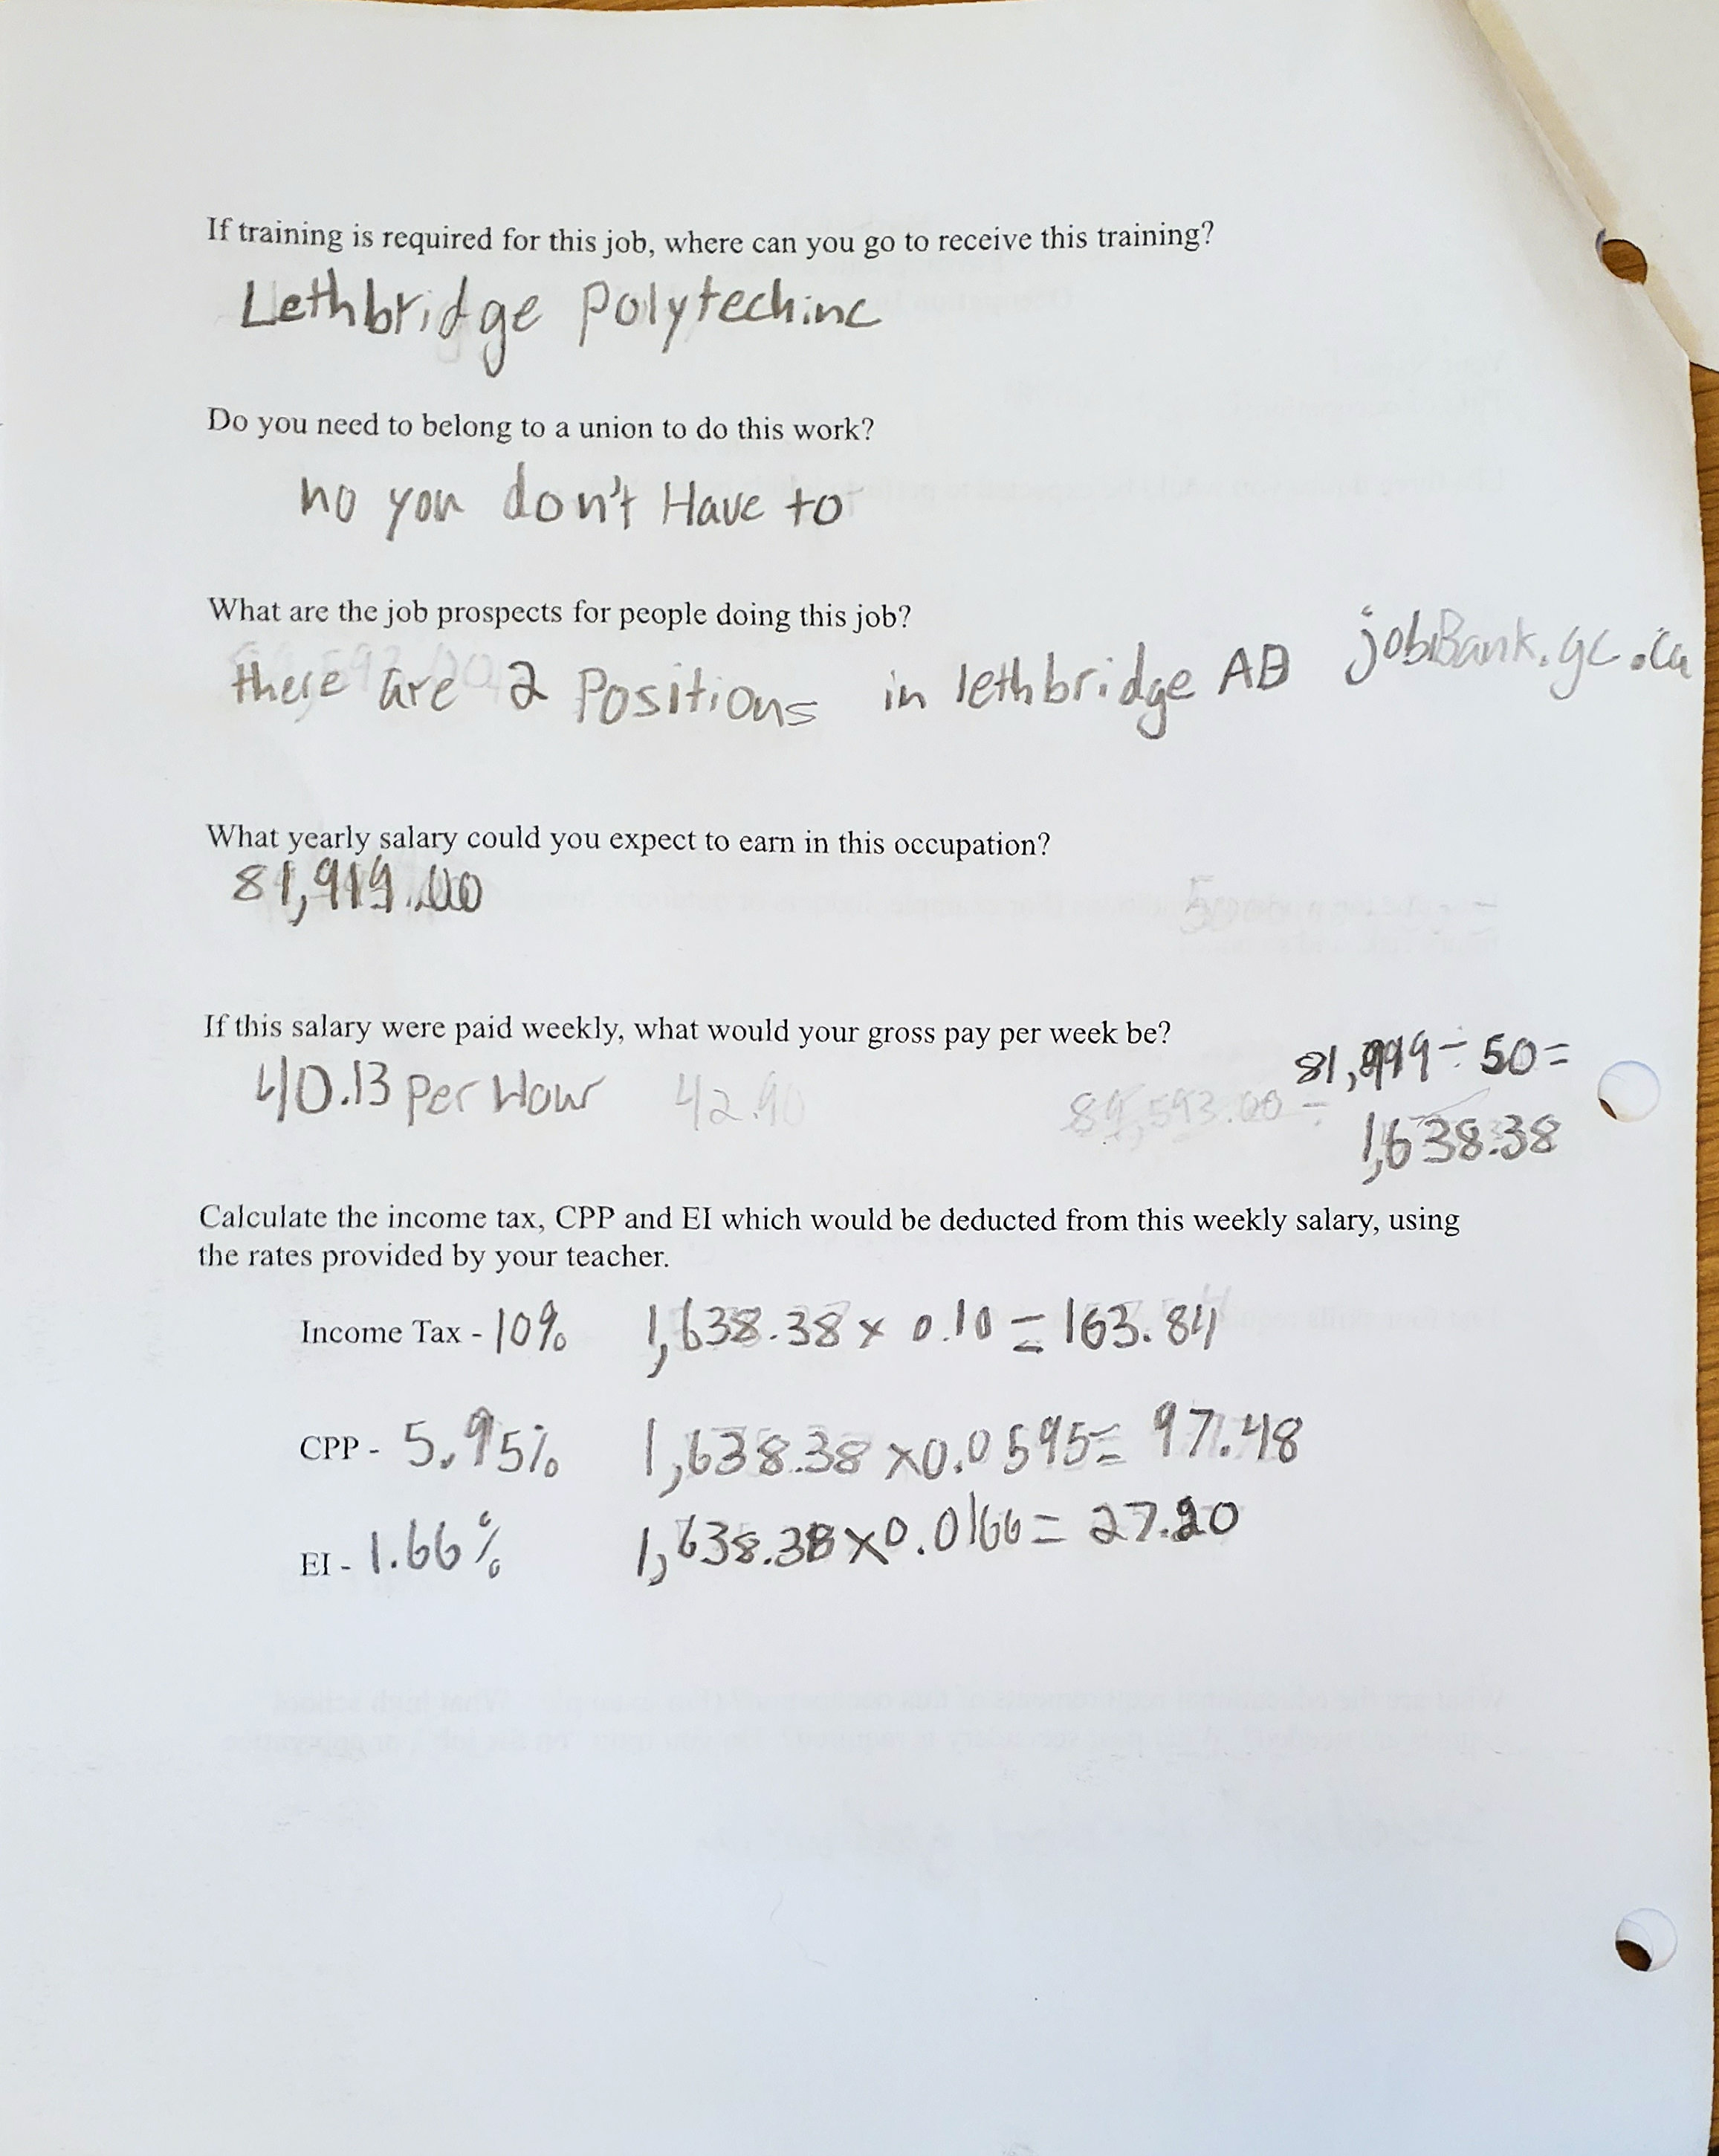 If training is required for this job, where can you go to receive this training?
Lethbridge Polytechinc
Do you need to belong to a union to do this work?
no you don't Have to
What are the job prospects for people doing this job?
there are 2 Positions in lethbridge AB jobBank.gc.ca
What yearly salary could you expect to earn in this occupation?
81,919.00
If this salary were paid weekly, what would your gross pay per week be?
81,919 ÷ 50 =
40.13 per Hour 42.90
89,593.00 ÷
1,638.38
Calculate the income tax, CPP and EI which would be deducted from this weekly salary, using
the rates provided by your teacher.
Income Tax - 10% 1,638.38 x 0.10 = 163.84
CPP - 5.95% 1,638.38 x 0.0595 = 97.48
EI - 1.66% 1,638.38 x 0.0166 = 27.20